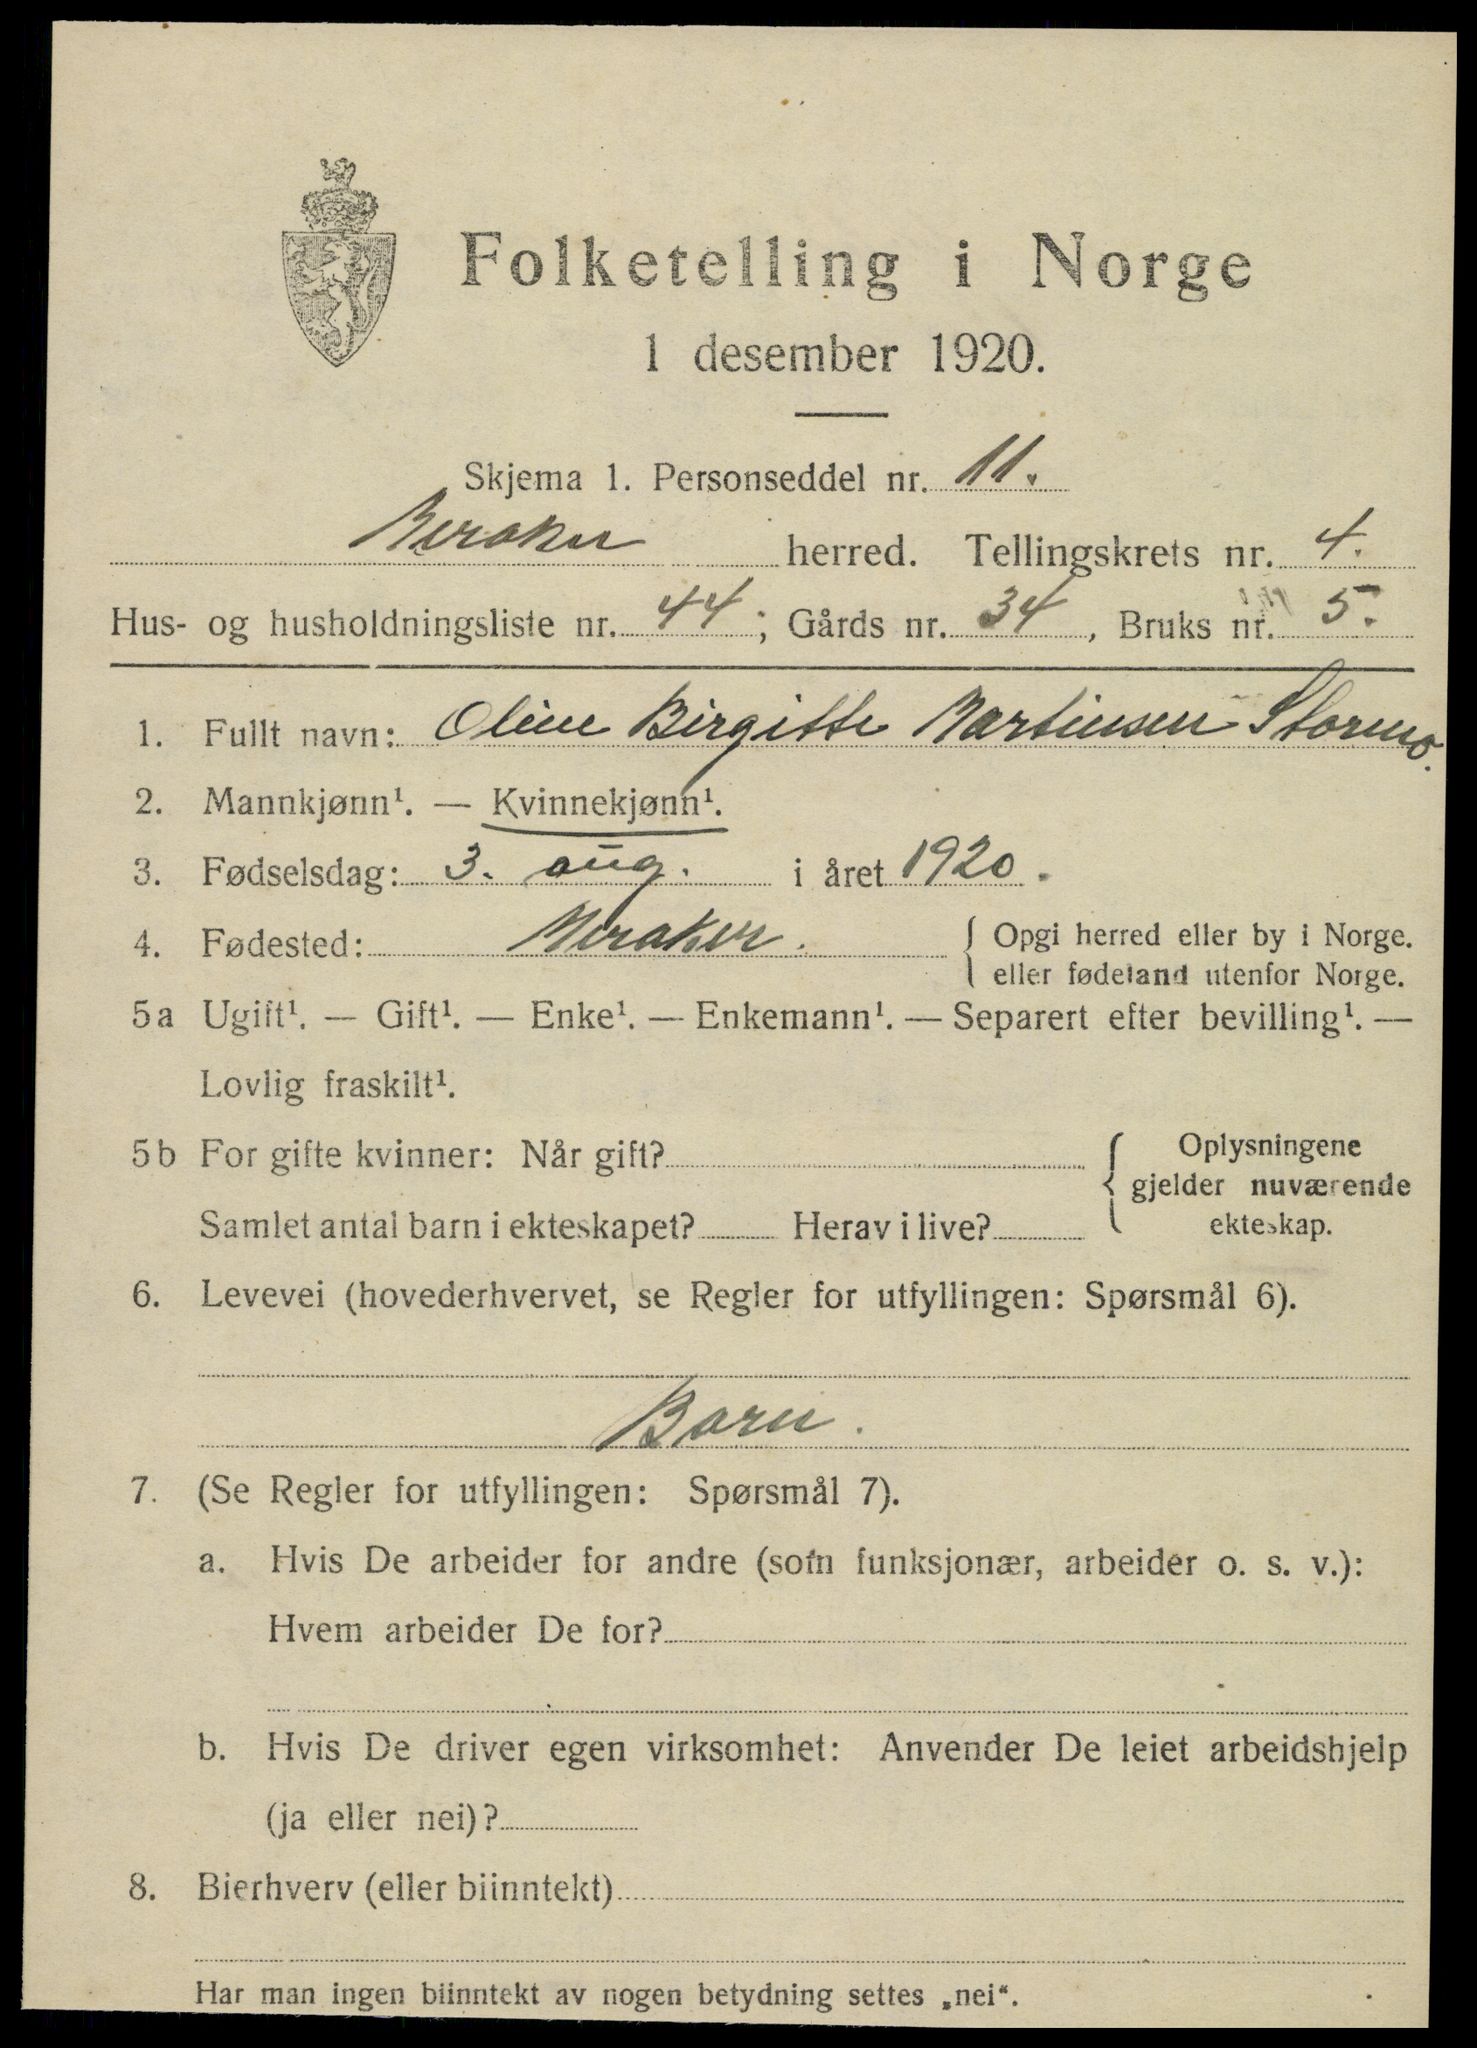 Folketelling i Norge
1 desember 1920.
Skjema 1. Personseddel nr. 11.
Meraker herred. Tellingskrets nr. 4.
Hus- og husholdningsliste nr. 44; Gårds nr. 34, Bruks nr. 5.
1. Fullt navn: Oline Birgitte Martinsen Stormo.
2. Mannkjønn¹. — Kvinnekjønn¹.
3. Fødselsdag: 3. aug. i året 1920.
4. Fødested: Meraker. { Opgi herred eller by i Norge.
eller fødeland utenfor Norge.
5a Ugift¹. — Gift¹. — Enke¹. — Enkemann¹. — Separert efter bevilling¹. —
Lovlig fraskilt¹.
5b For gifte kvinner: Når gift? { Oplysningene
gjelder nuværende
Samlet antal barn i ekteskapet? Herav i live? ekteskap.
6. Levevei (hovederhvervet, se Regler for utfyllingen: Spørsmål 6).
Barn.
7. (Se Regler for utfyllingen: Spørsmål 7).
a. Hvis De arbeider for andre (som funksjonær, arbeider o. s. v.):
Hvem arbeider De for?
b. Hvis De driver egen virksomhet: Anvender De leiet arbeidshjelp
(ja eller nei)?
8. Bierhverv (eller biinntekt)
Har man ingen biinntekt av nogen betydning settes „nei“.